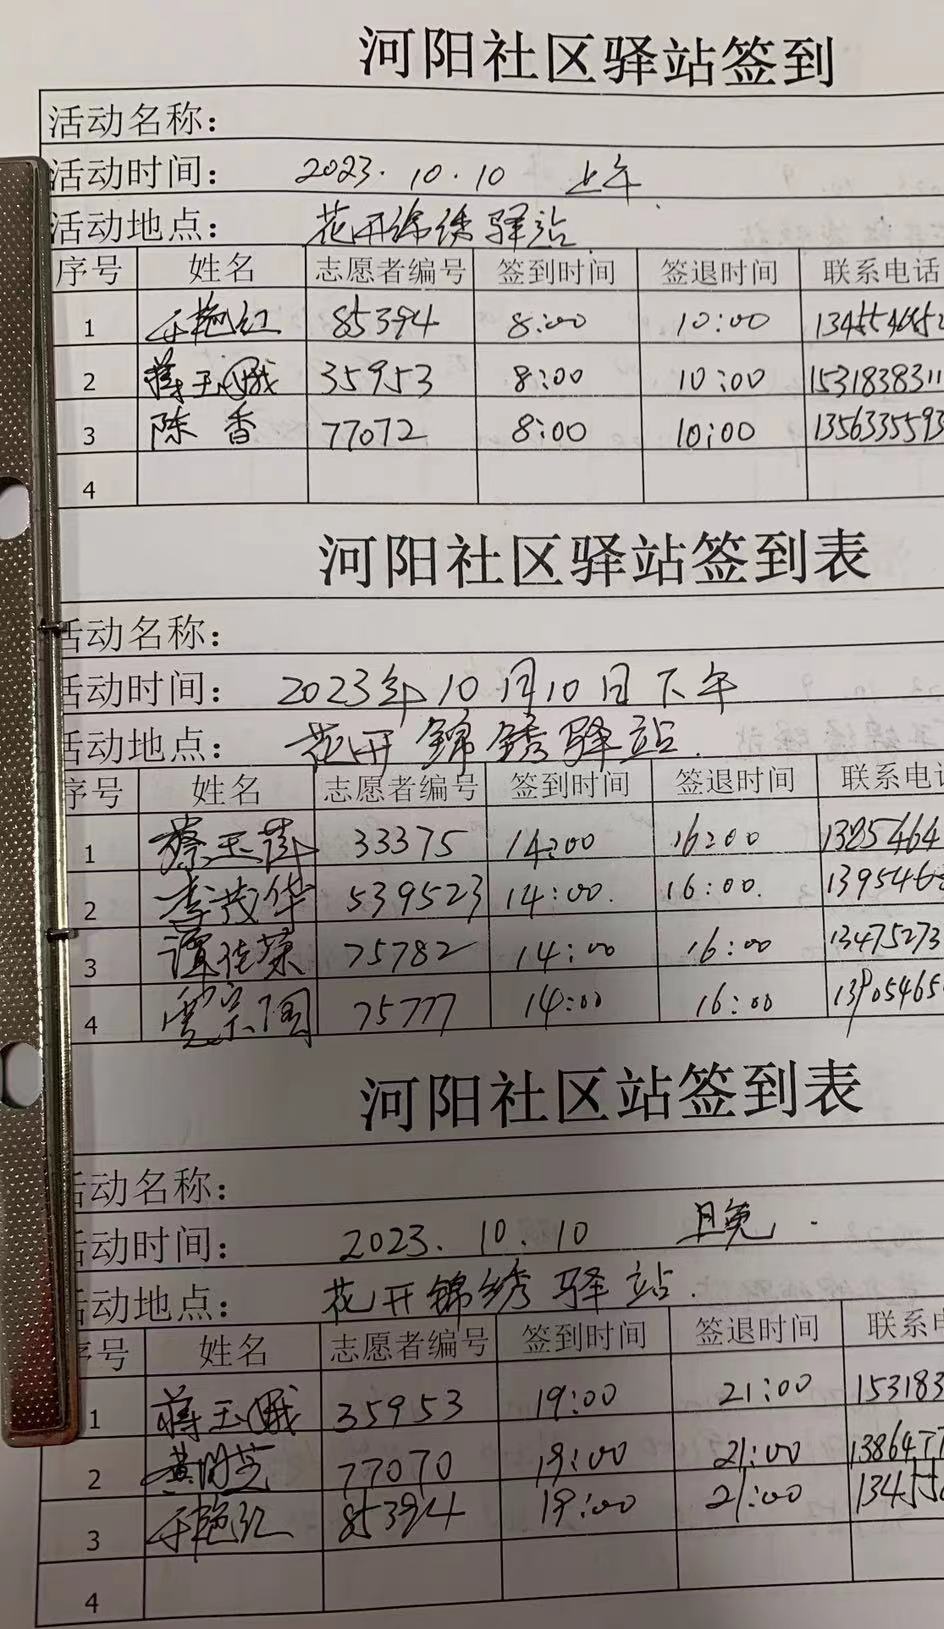 河阳社区驿站签到
活动名称：
活动时间： 2023.10.10 上午
活动地点： 花开锦绣驿站
序号 姓名 志愿者编号 签到时间 签退时间 联系电话
1 于艳红 85394 8:00 10:00
2 蒋玉娥 35953 8:00 10:00 1531838311
3 陈香 77072 8:00 10:00 1356335593
4
河阳社区驿站签到表
活动名称：
活动时间： 2023年10月10日下午
活动地点： 花开錦锈驿站.
序号 姓名 志愿者编号 签到时间 签退时间 联系电话
1 蔡玉萍 33375 14:00 16:00 1385464
2 李茂华 539523 14:00. 16:00. 139546
3 谭佳荣 75782 14:00 16:00 13475273
4 75777 14:00 16:00 13905465
河阳社区站签到表
活动名称：
活动时间： 2023.10.10 晚
活动地点： 花开锦绣驿站.
序号 姓名 志愿者编号 签到时间 签退时间 联系电
1 蒋玉娥 35953 19:00 21:00 153183
2 77070 19:00 21:00 138647
3 于艳红 85394 19:00 21:00 13455
4